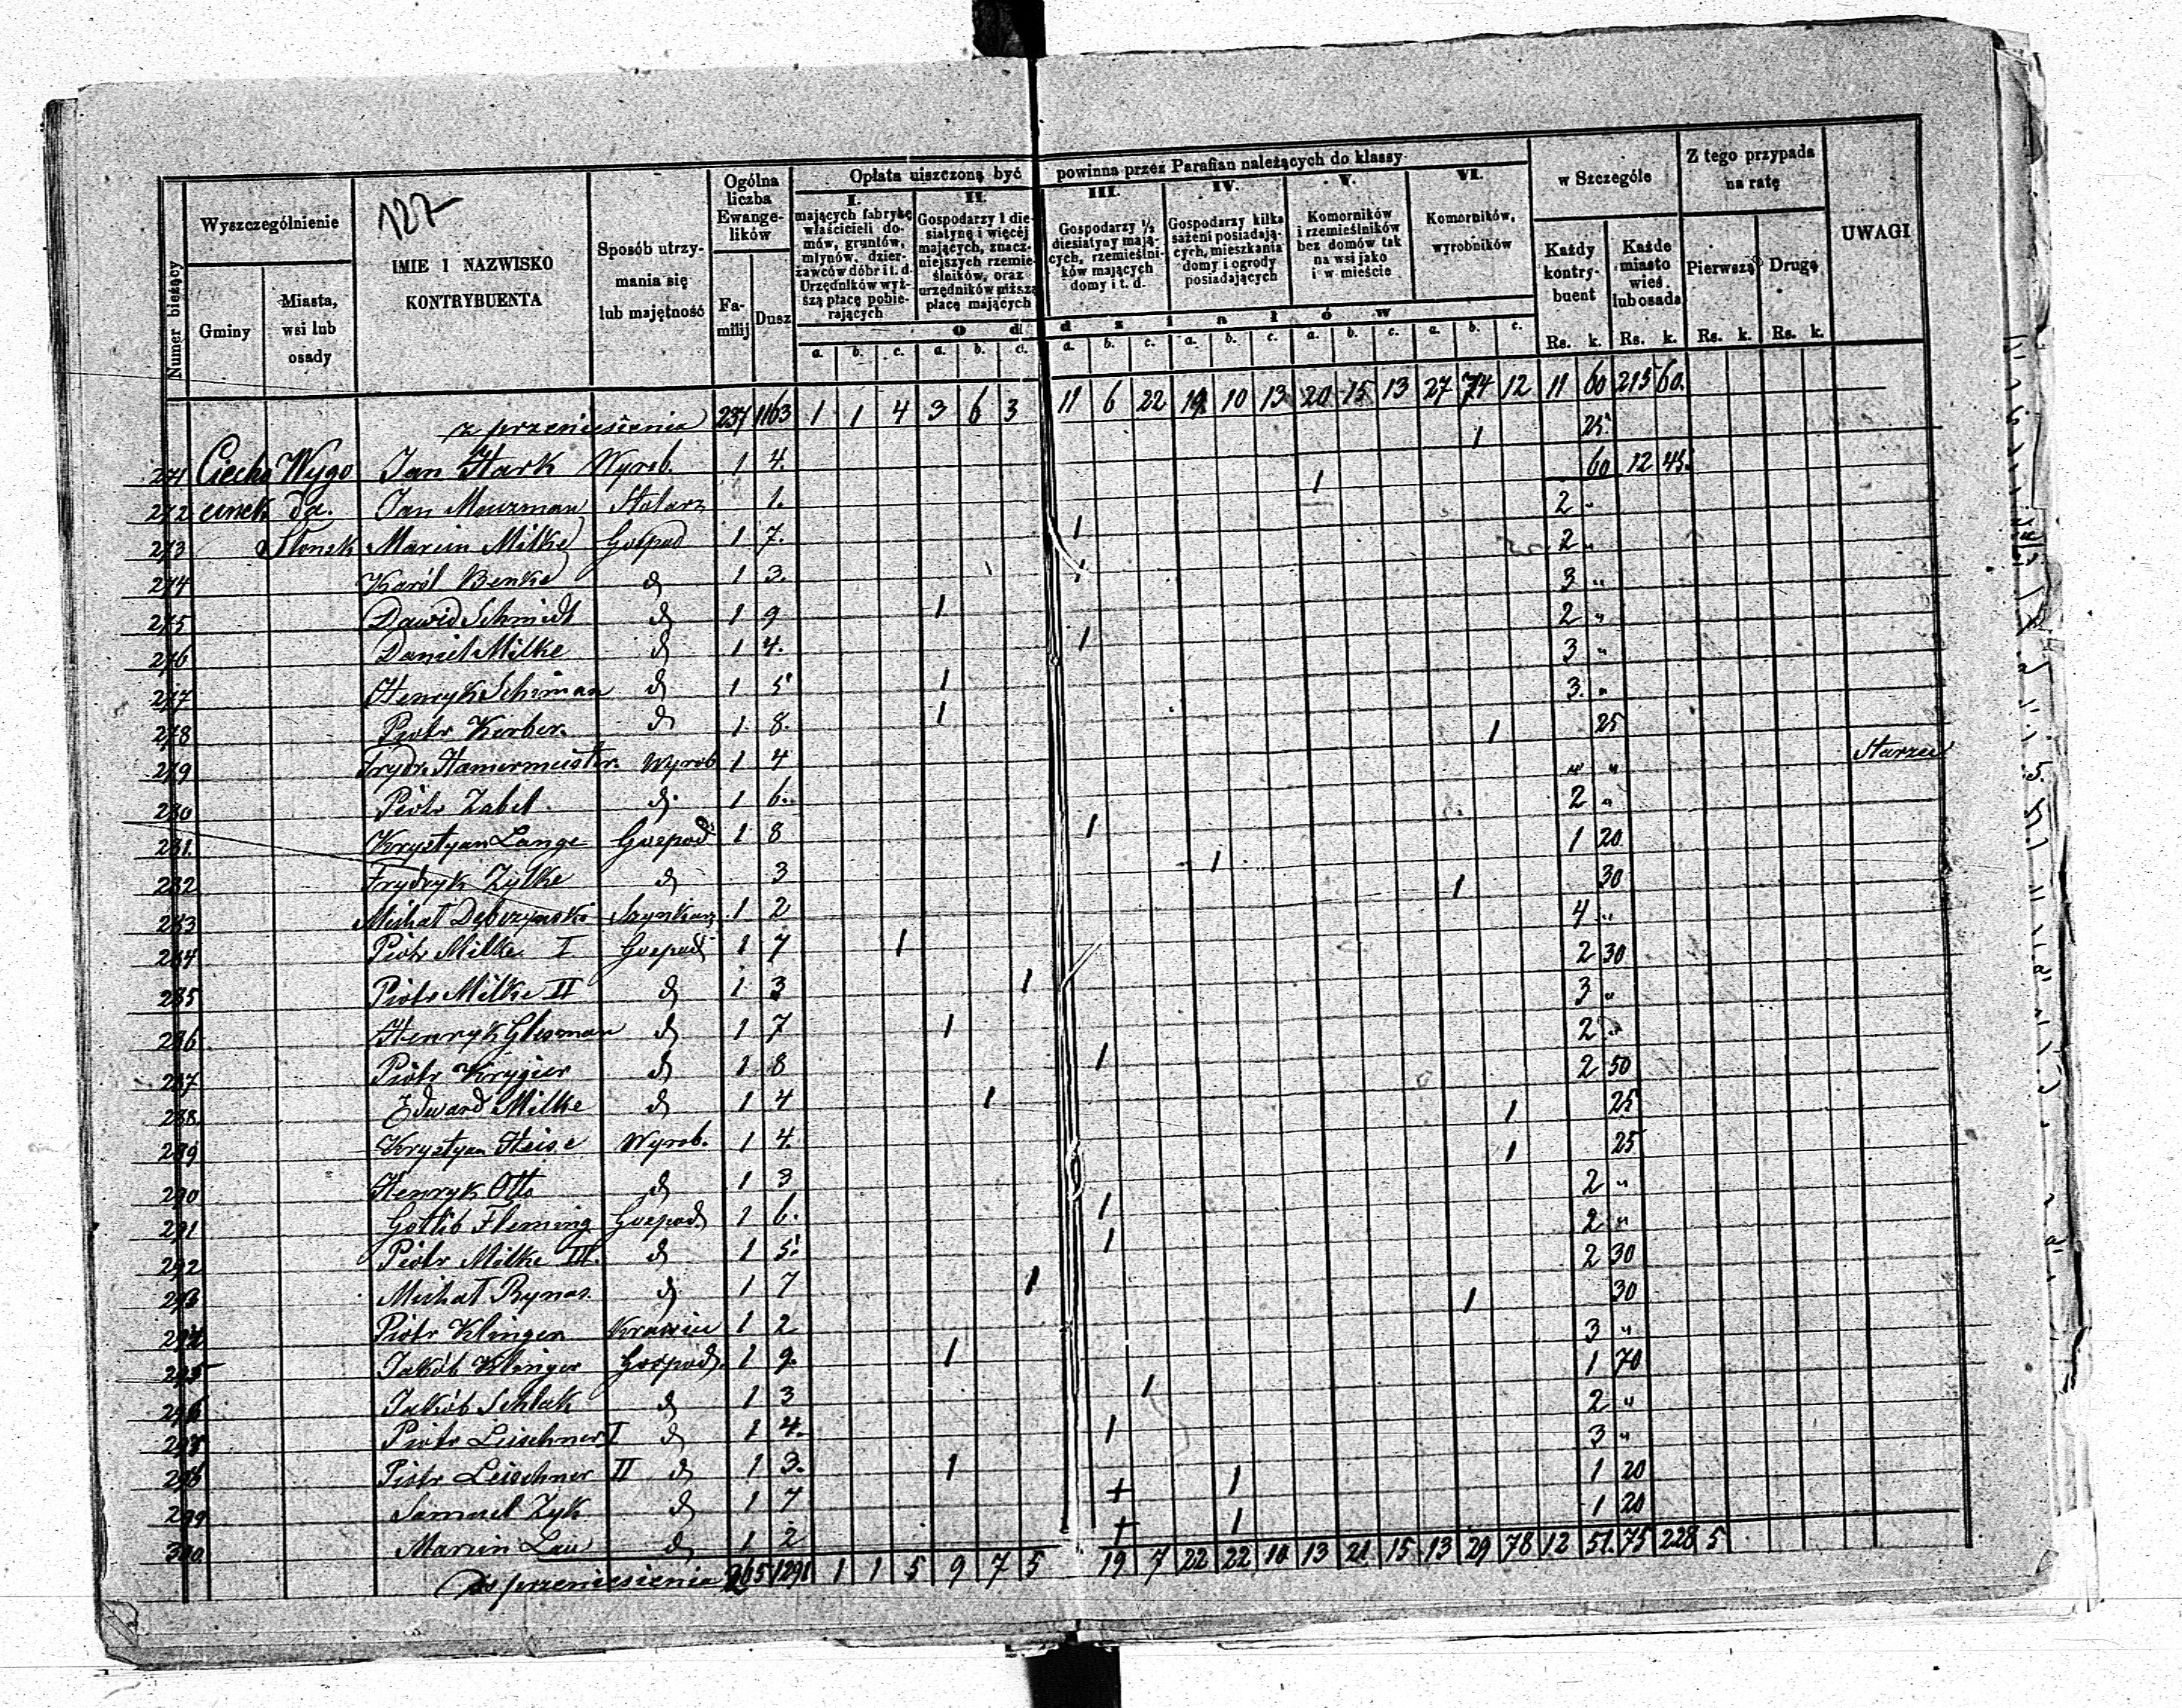 127
Numer bieżący
Wyszczególnienie
Gminy
Miasta, wsi lub osady
IMIE I NAZWISKO KONTRYBUENTA
Sposób utrzymania się lub majętność
Ogólna liczba Ewangelików
Familij
Dusz
Opłata uiszczoną być powinna przez Parafian należących do klassy
I. mających fabrykę właścicieli domów, gruntów, młynów, dzierżawców dóbr i t. d. Urzędników wyższą płacę pobierających
II. Gospodarzy 1 diesiatynę i więcej mających, znaczniejszych rzemieślników, oraz urzędników niższą płacę mających
III. Gospodarzy ½ diesiatyny mających, rzemieślników mających domy i t. d.
IV. Gospodarzy kilka sążeni posiadających, mieszkania domy i ogrody posiadających
V. Komorników i rzemieślników bez domów tak na wsi jako i w mieście
VI. Komorników, wyrobników
O d d z i a ł ó w
a. b. c. a. b. c. a. b. c. a. b. c. a. b. c. a. b. c.
w Szczególe
Każdy kontrybuent
Każde miasto wieś lub osada
Z tego przypada na ratę
Pierwszą
Drugą
UWAGI
Rs. k. Rs. k. Rs. k. Rs. k.
z przeniesienia 237 1163 1 1 4 3 6 3 11 6 22 19 10 13 20 15 13 27 74 12 11 60 215 60.
271 Ciecho Wygo Jan Stark Wyrob. 1 4. 1 25.
272 cinek da. Jan Meuzman Stolarz 1. 1 60 12 45.
273 Słonsk Marcin Milke Gospod 1 7. 1 2 "
274 Karól Benke d 1 3. 1 2 "
275 Dawid Schmidt d 1 9 1 3 "
276 Daniel Milke d 1 4. 1 2 "
277 Henryk Schiman d 1 5 1 3 "
278 Piotr Kerber. d 1 8. 1 3. "
279 Frydr. Hamermeister Wyrob 1 4 1 25
280 Piotr Zabel d. 1 6. " " Starzec
281. Krystyan Lange Gospod 1 8 1 2 "
282 Frydryk Zylke d 3 1 1 20
283 Michał Dębczynski Szynkarz 1 2 1 30
284 Piotr Milke I Gospod 1 7 1 4 "
285 Piotr Milke II d 1 3 1 2 30
286 Henryk Glesman d 1 7 1 3 "
287 Piotr Krygier d 1 8 1 2 "
288. Edward Milke d 1 4 1 2 50
289 Krystyan Heise Wyrob. 1 4. 1 25
290 Henryk Otto d 1 3 1 25
291 Gotlib Fleming Gospod 1 6. 1 2 "
292 Piotr Milke III. d 1 5. 1 2 "
293 Michał Rynas. d 1 7 1 2 30
294 Piotr Klinger Krawiec 1 2 1 30
295 Jakób Klinger Gospod. 1 9. 1 3 "
296 Jakób Schlak d 1 3 1 1 70
297 Piotr Leischner I d 1 4. 1 2 "
298 Piotr Leischner II d 1 3. 1 3 "
299 Samuel Zyk d 1 7 + 1 1 20
300 Marcin Lau d 1 2 + 1 1 20
do przeniesienia 265 1291 1 1 5 9 7 5 19 7 22 22 10 13 21 15 13 29 78 12 51. 75 228 5